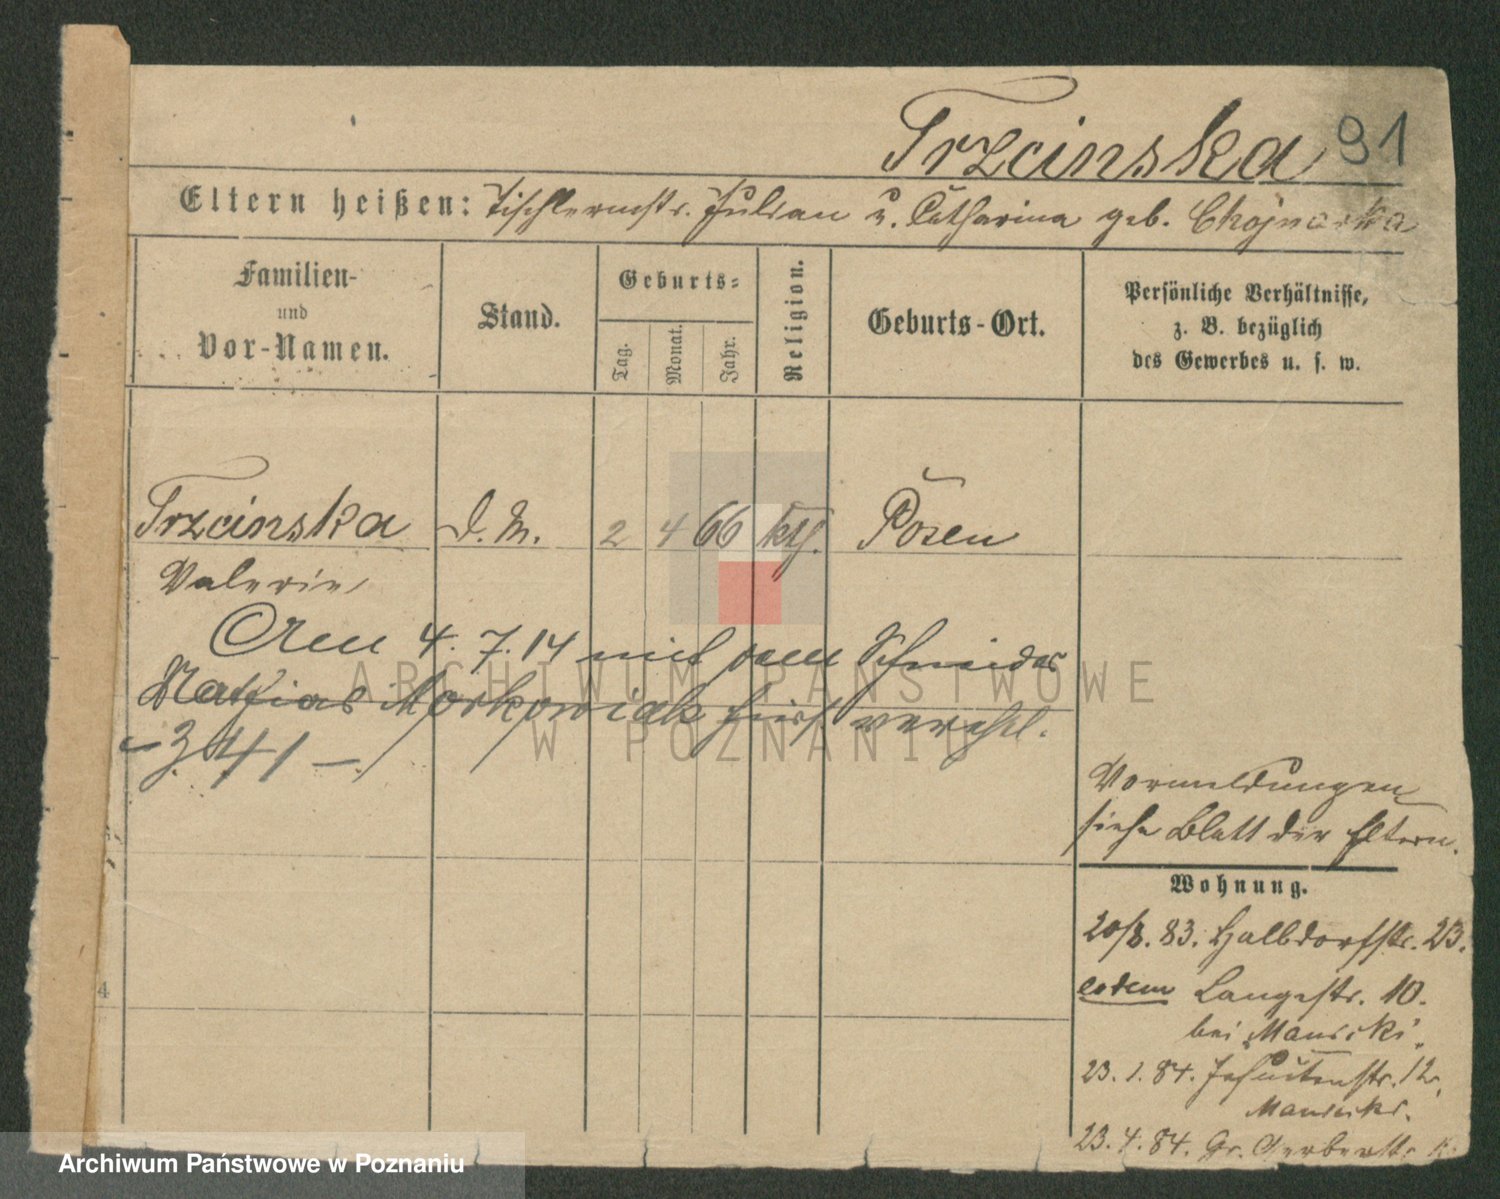 Trzcinska 91
Eltern heißen: Tischlermstr. Julian u. Catharina geb. Chojnacka
Familien-
und
Vor-Namen.
Stand.
Geburts-
Tag.
Monat.
Jahr.
Religion.
Geburts-Ort.
Persönliche Verhältnisse,
z. B. bezüglich
des Gewerbes u. s. w.
Trzcinska D. M. 2 4 66 kth. Posen
Valerie
Am 4. 7. 14 mit dem Schneider
Mathias Morkowiak hier verehl.
Vormeldungen
siehe Blatt der Eltern.
Wohnung.
20/8. 83. Halbdorfstr. 23.
eodem Langestr. 10.
bei Manicki.
23. 1. 84. Jesuitenstr. 12,
Manicki.
23. 4. 84. Gr. Gerberstr.
4
ARCHIWUM PAŃSTWOWE
W POZNANIU
Archiwum Państwowe w Poznaniu